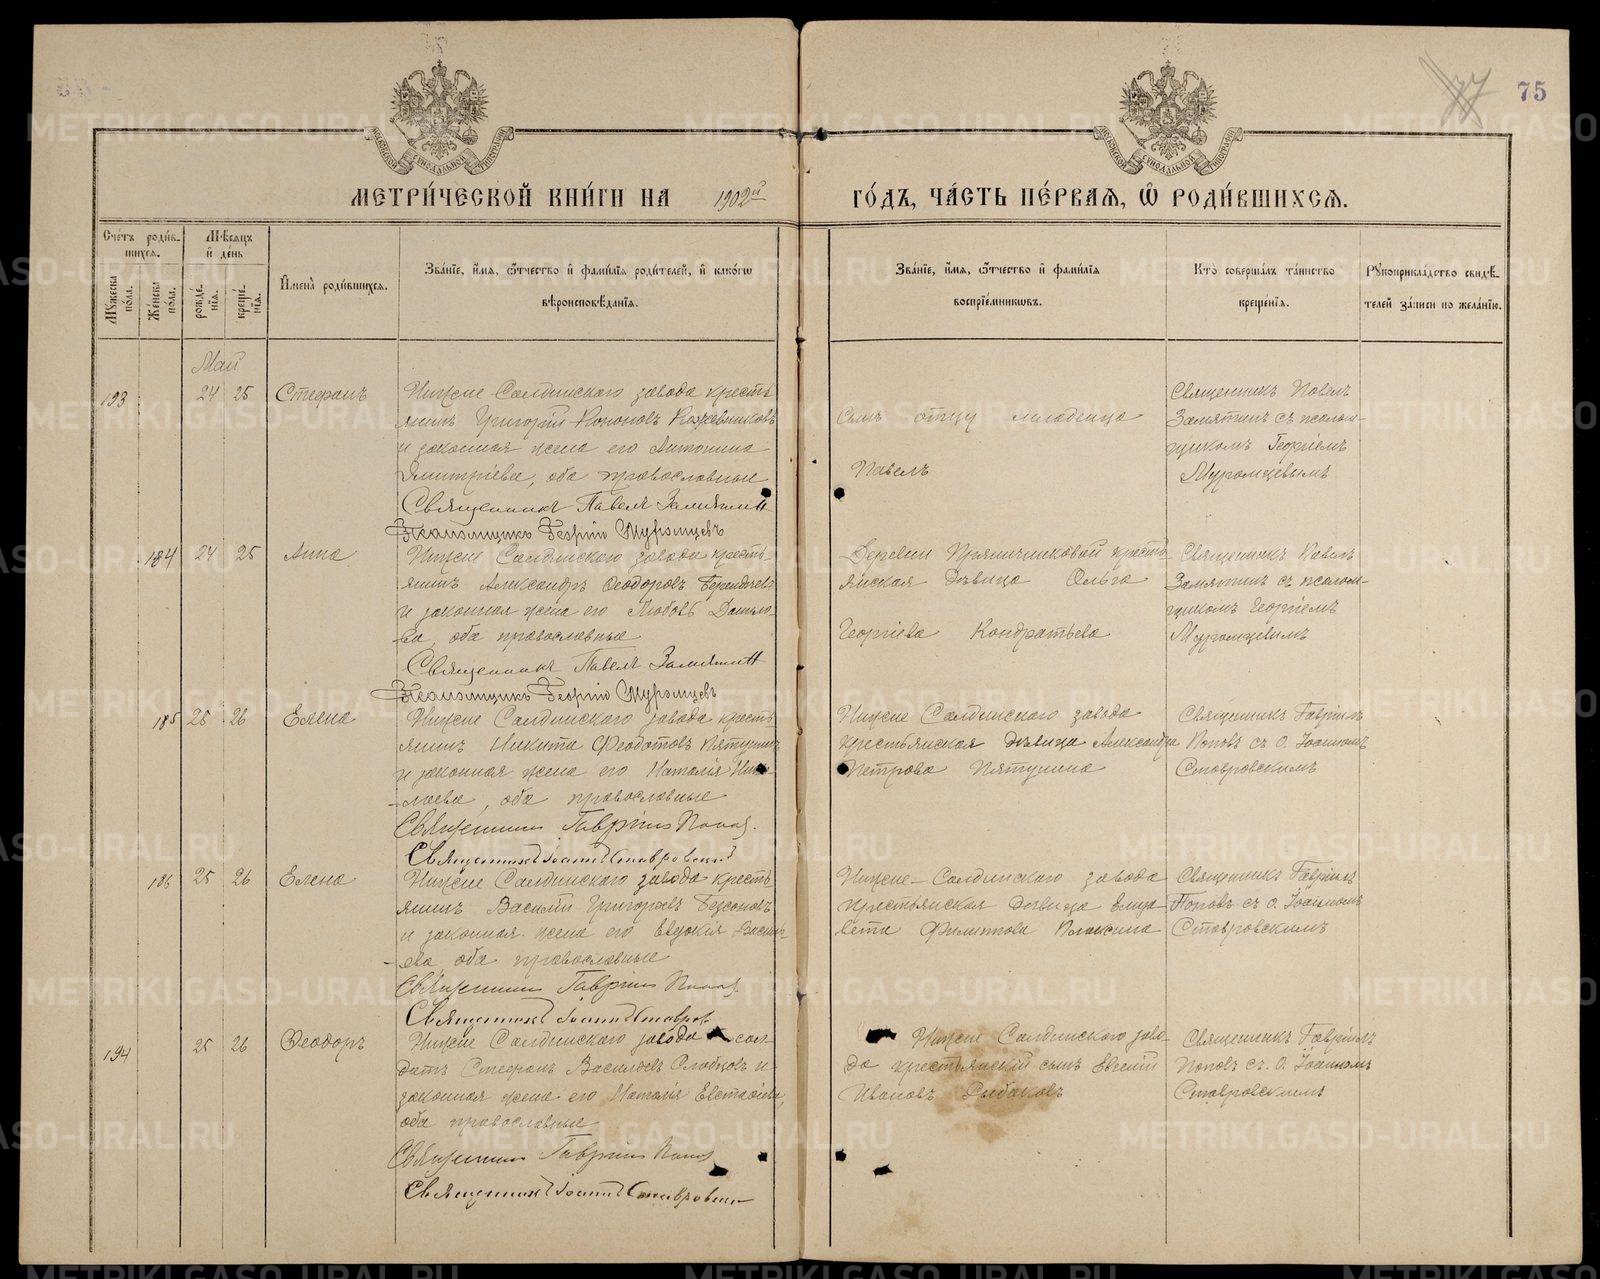 75
77
МОСКОВСКОЙ СѴНОДАЛЬНОЙ ТИПОГРАФІИ
МОСКОВСКОЙ СѴНОДАЛЬНОЙ ТИПОГРАФІИ
МЕТРИ́ЧЕСКОЙ КНИ́ГИ НА 1902й ГО́ДЪ, ЧА́СТЬ ПЕ́РВАЯ, Ѡ҆ РОДИ́ВШИХСЯ.
Сче́тъ роди́в-
шихся.
Мѣ́сяцъ
и҆ де́нь
Му́жеска по́ла.
Же́нска по́ла.
рожде́нїя.
креще́нїя.
И҆мена̀ роди́вшихся.
Зва́нїе, и҆́мя, ѻ҆́тчество и҆ фами́лїя роди́телей, и҆ како́гѡ
вѣроисповѣ́данїя.
Зва́нїе, и҆́мя, ѻ҆́тчество и҆ фами́лїя
воспрїе́мникѡвъ.
Кто̀ соверша́лъ та́инство
креще́нїя.
Рꙋкоприкла́дство свидѣ́-
телей за́писи по жела́нїю.
Май
193 24 25 Стефанъ
Нижне Салдинского завода кресть
янинъ Григорій Кононовъ Кожевниковъ
и законная жена его Антонина
Дмитріева, оба православные
Священникъ Павелъ Замятинъ
Псаломщикъ Георгій Муромцевъ
Сынъ отцу младенца
Павелъ
Священникъ Павелъ
Замятинъ съ псалом-
щикомъ Георгіемъ
Муромцевымъ
184 24 25 Анна
Нижне Салдинского завода кресть-
янинъ Александръ Ѳеодоровъ
и законная жена его Любовь Данило-
ва, оба православные
Священникъ Павелъ Замятинъ
Псаломщикъ Георгій Муромцевъ
Деревни Прянишниковой кресть-
янская дѣвица Ольга
Георгіева Кондратьева
Священникъ Павелъ
Замятинъ съ псалом-
щикомъ Георгіемъ
Муромцевымъ
185 25 26 Елена
Нижне Салдинского завода кресть
янинъ Никита Ѳеодотовъ Пятунинъ
и законная жена его Наталія Нико-
лаева, оба православные
Священникъ Гавріилъ Поповъ.
Священникъ Іоаннъ Ставровскій
Нижне Салдинского завода
крестьянская дѣвица Александра
Петрова Пятунина
Священникъ Гавріилъ
Поповъ съ о. Іоанномъ
Ставровскимъ
186 25 26 Елена
Нижне Салдинского завода кресть
янинъ Василій Григорьевъ Безсоновъ
и законная жена его Евдокія Василь-
ева оба православные
Священникъ Гавріилъ Поповъ.
Священникъ Іоаннъ Ставров
Нижне-Салдинского завода
крестьянская дѣвица Елиза-
вета Филиппова Плаксина
Священникъ Гавріилъ
Поповъ съ о. Іоанномъ
Ставровскимъ
194 25 26 Ѳеодоръ
Нижне Салдинского завода сол-
датъ Стефанъ Васильевъ Слобцовъ и
законная жена его Наталія Евстафіева,
оба православные
Священникъ Гавріилъ Поповъ
Священникъ Іоаннъ Ставровскій
Нижне Салдинского заво-
да крестьянскій сынъ Евсевій
Ивановъ Рыбаковъ
Священникъ Гавріилъ
Поповъ съ о. Іоанномъ
Ставровскимъ
METRIKI.GASO-URAL.RU